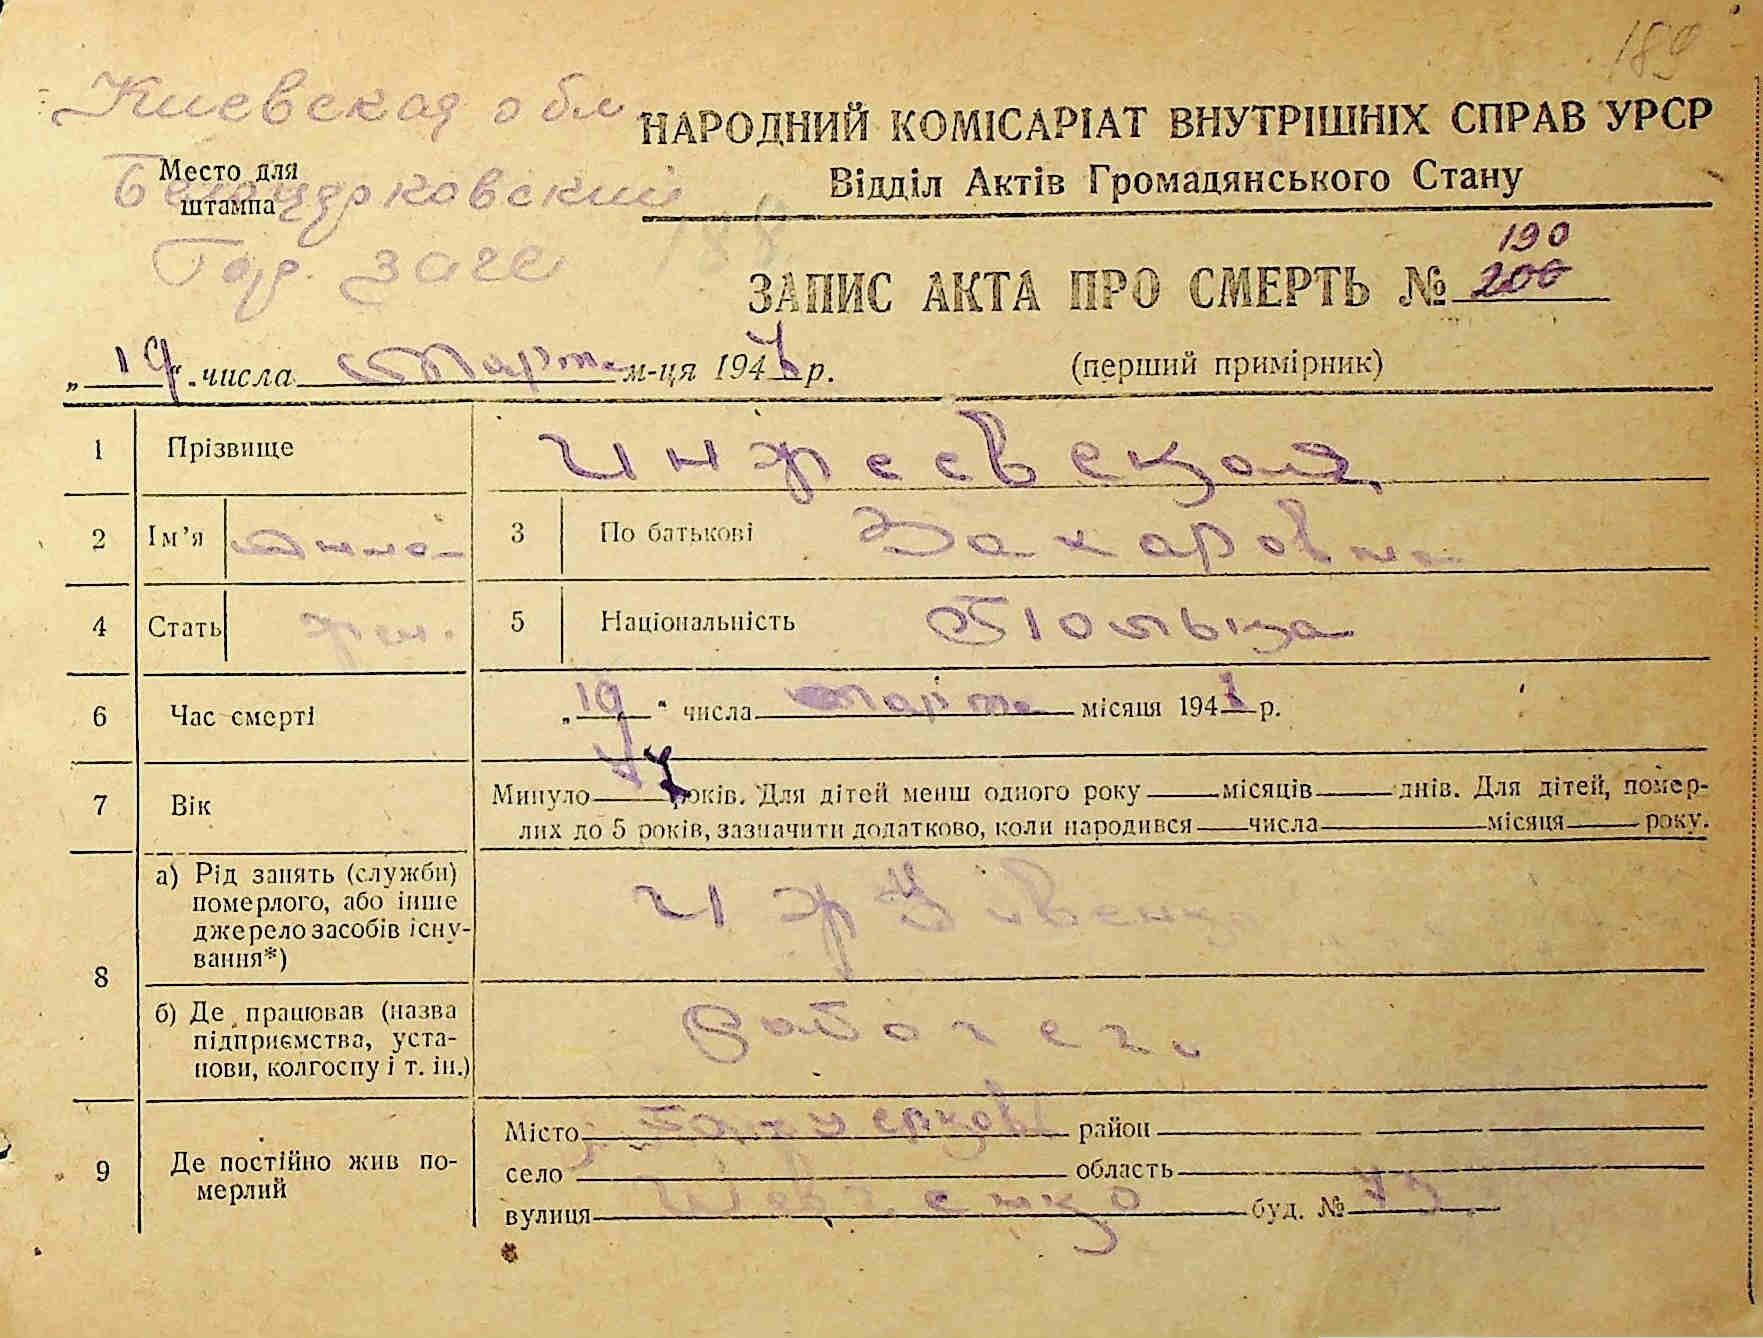 189
Киевская обл
НАРОДНИЙ КОМІСАРІАТ ВНУТРІШНІХ СПРАВ УРСР
Место для
штампа
Белоцерковский
Відділ Актів Громадянського Стану
188
Гор. загс
190
ЗАПИС АКТА ПРО СМЕРТЬ № 200
„19“ числа Марта м-ця 194 р.
(перший примірник)
1 Прізвище
2 Ім’я Анна 3 По батькові Захаровна
4 Стать жен. 5 Національність Полька
6 Час смерті „19“ числа марта місяця 194 р.
7 Вік Минуло років. Для дітей менш одного року місяців днів. Для дітей, помер-
лих до 5 років, зазначити додатково, коли народився числа місяця року.
8 а) Рід занять (служби)
померлого, або інше
джерело засобів існу-
вання*)
Иждивенка
б) Де працював (назва
підприємства, уста-
нови, колгоспу і т. ін.)
Рабочего
9 Де постійно жив по-
мерлий
Місто район
село область
вулиця Шевченко буд. №
*